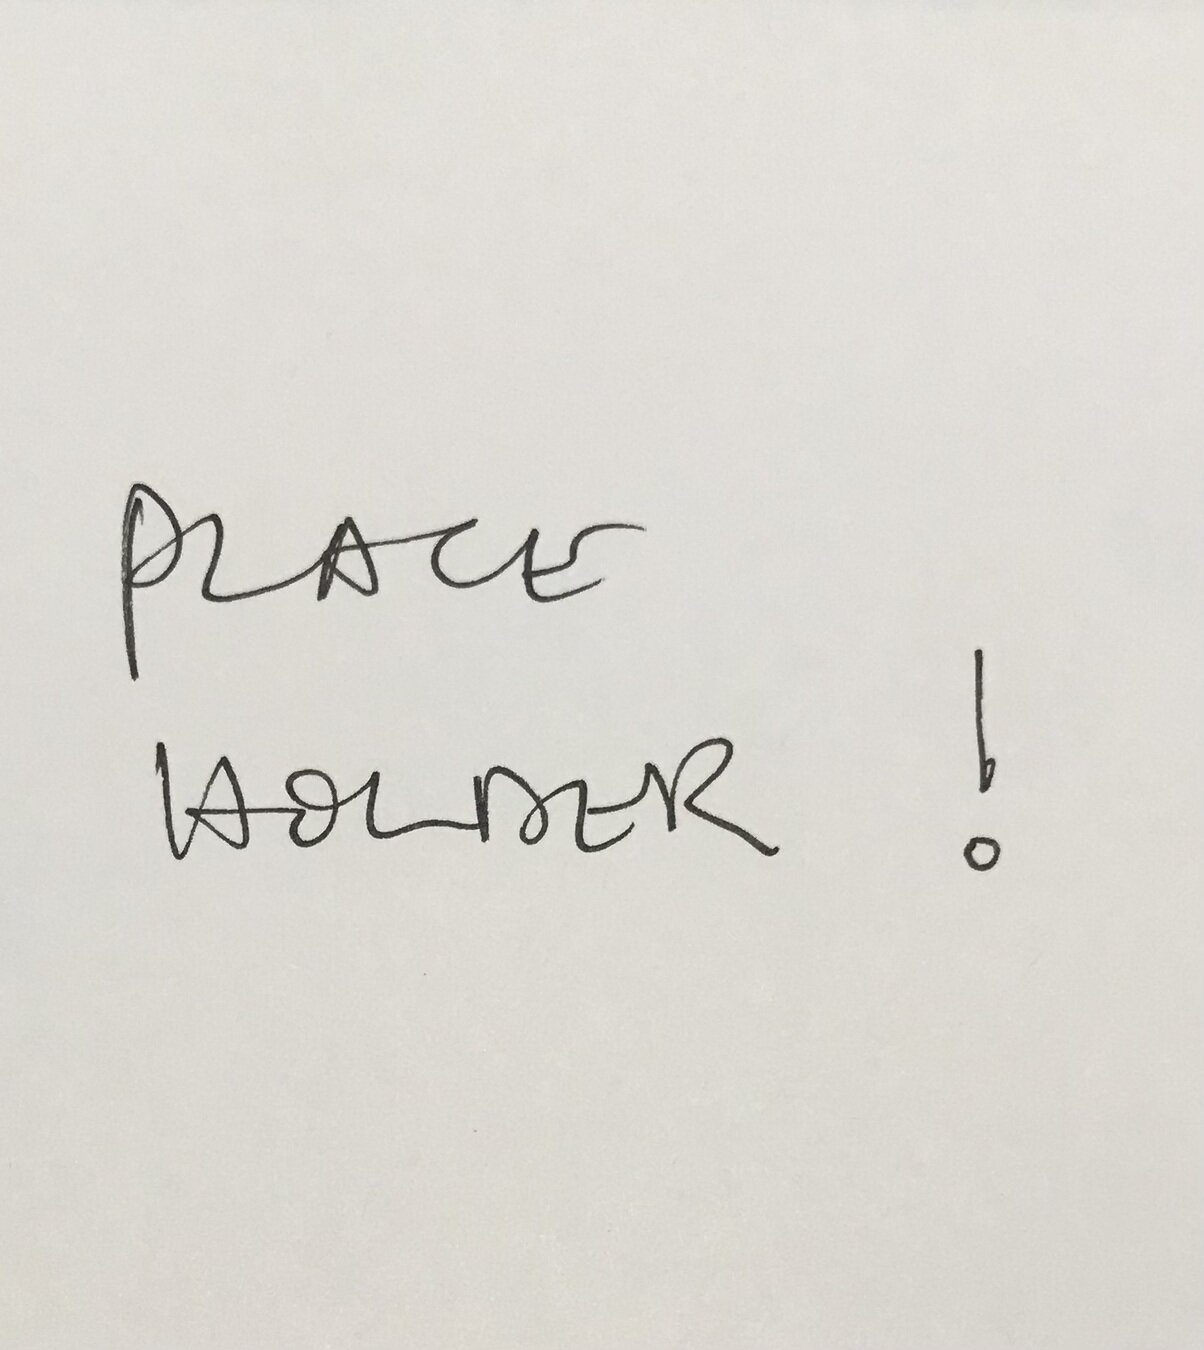 PLACE
HOLDER !